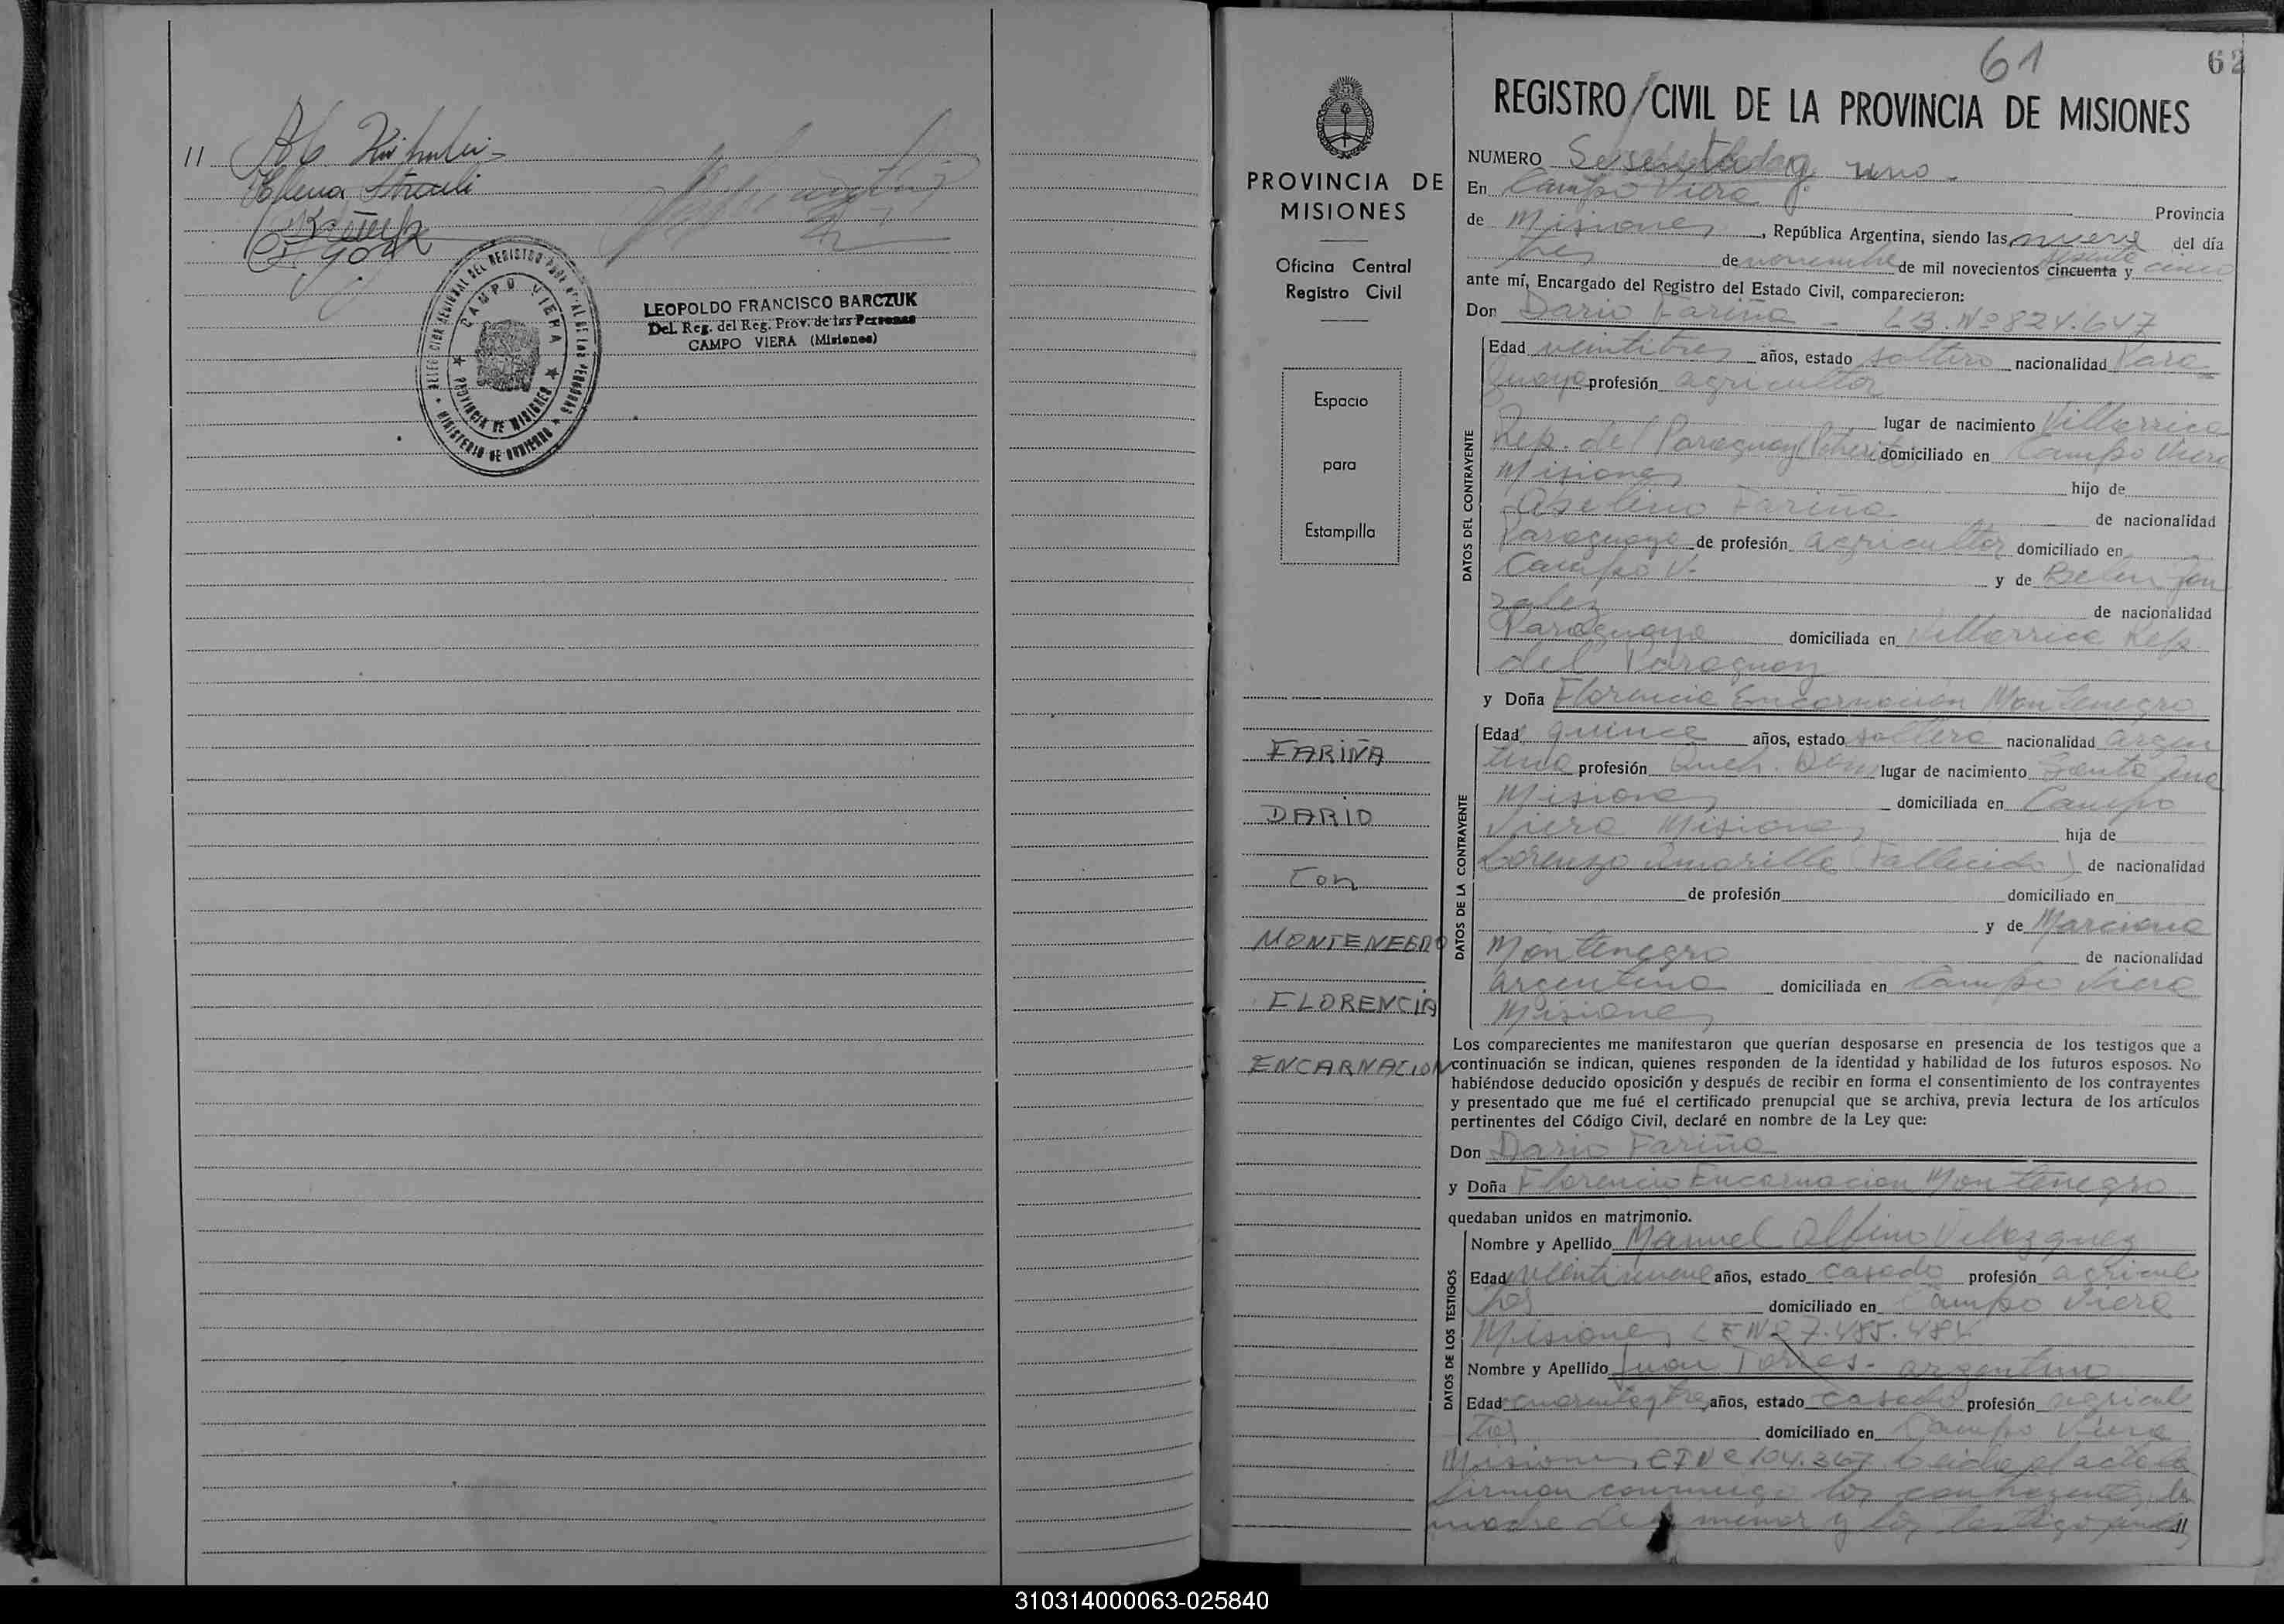 11
Elena
DELEGACION REGIONAL DEL REGISTRO PROVINCIAL DE LAS PERSONAS
CAMPO VIERA
PROVINCIA DE MISIONES
MINISTERIO DE GOBIERNO
LEOPOLDO FRANCISCO BARCZUK
Del. Reg. del Reg. Prov. de las Personas
CAMPO VIERA (Misiones)
61
62
REGISTRO CIVIL DE LA PROVINCIA DE MISIONES
PROVINCIA DE
MISIONES
Oficina Central
Registro Civil
Espacio
para
Estampilla
FARIÑA
DARIO
con
MONTENEGRO
FLORENCIA
ENCARNACION
NUMERO Sesenta y uno -
En Campo Viera Provincia
de Misiones, República Argentina, siendo las nueve del día
tres de noviembre de mil novecientos cincuenta sesenta y cinco
ante mí, Encargado del Registro del Estado Civil, comparecieron:
Don Dario Fariña - C.I. Nº 824.647
DATOS DEL CONTRAYENTE
Edad veintitres años, estado soltero nacionalidad Para
guaya profesión agricultor
lugar de nacimiento Villarrica
Rep. del Paraguay domiciliado en Campo Viera
Misiones hijo de
Fariña de nacionalidad
Paraguaya de profesión agricultor domiciliado en
Campo V. y de Belen Gon
zalez de nacionalidad
Paraguaya domiciliada en Villarrica Rep.
del Paraguay
y Doña Florencia Encarnacion Montenegro
DATOS DE LA CONTRAYENTE
Edad quince años, estado soltera nacionalidad argen
tina profesión Queh. Dom lugar de nacimiento Santa Ana
Misiones domiciliada en Campo
Viera Misiones hija de
Lorenzo Amarilla (Fallecido) de nacionalidad
de profesión domiciliado en
y de Marciana
Montenegro de nacionalidad
argentina domiciliada en Campo Viera
Misiones
Los comparecientes me manifestaron que querían desposarse en presencia de los testigos que a
continuación se indican, quienes responden de la identidad y habilidad de los futuros esposos. No
habiéndose deducido oposición y después de recibir en forma el consentimiento de los contrayentes
y presentado que me fué el certificado prenupcial que se archiva, previa lectura de los artículos
pertinentes del Código Civil, declaré en nombre de la Ley que:
Don Dario Fariña
y Doña Florencia Encarnacion Montenegro
quedaban unidos en matrimonio.
DATOS DE LOS TESTIGOS
Nombre y Apellido Manuel Albino Velazquez
Edad veintinueve años, estado casado profesión agricul
tor domiciliado en Campo Viera
Misiones LE Nº 7.485.484
Nombre y Apellido Juan Torres - argentino
Edad cuarenta y tres años, estado casado profesión agricul
tor domiciliado en Campo Viera
Misiones CI Nº 104.367 Leida el acta la
firman conmigo los contrayentes, la
madre de la menor y los testigos //
310314000063-025840